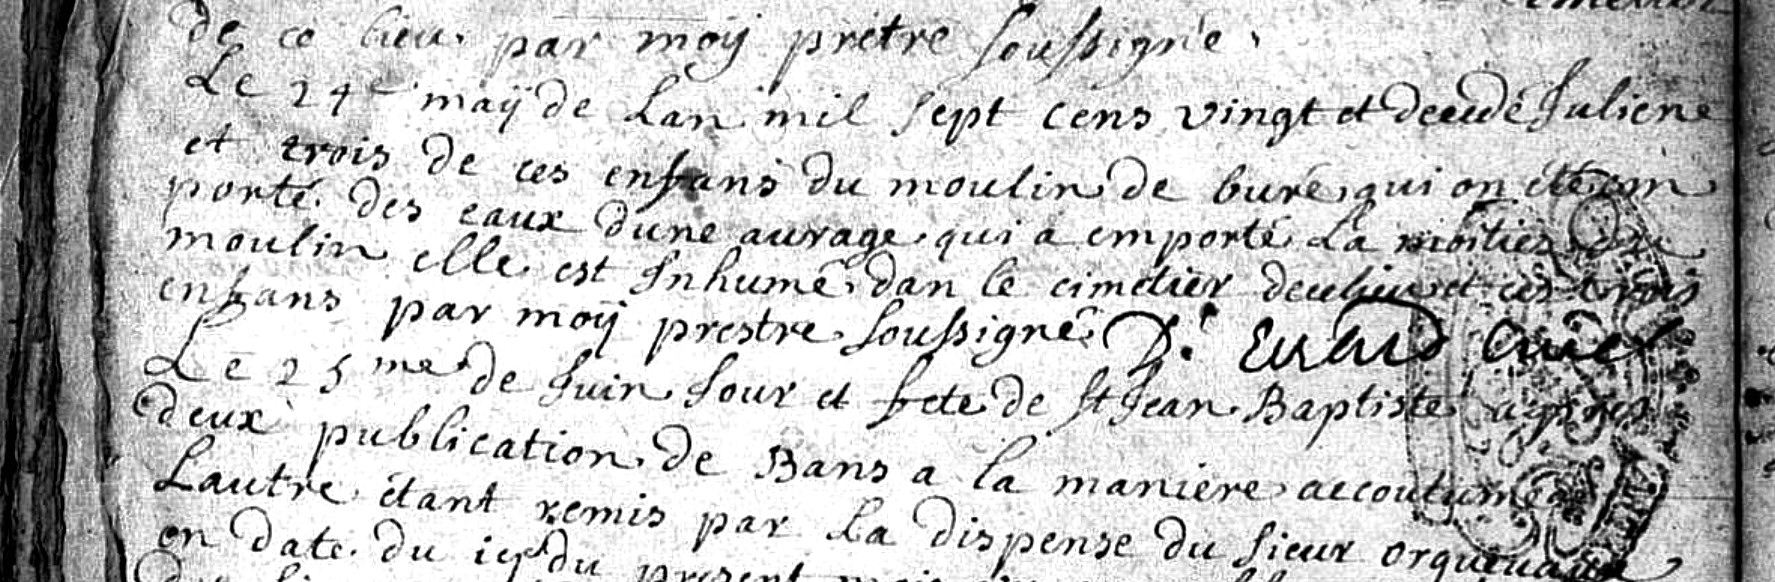 de ce lieu par moÿ prêtre soussigné.
Le 24e maÿ de Lan mil sept cens vingt et decedé Juliene
et trois de ces enfans du moulin de buré qui on été em
porté des eaux dune aurage qui a emporté La moitiez
moulin elle est Inhumé dan le cimetier deceliеu et ces trois
enfans par moÿ prestre soussigné D. Evrard
Le 25me de Juin Jour et fete de St Jean Baptiste apres
deux publication de Bans a la maniere accoutumée
Lautre étant remis par La dispense du sieur
en date du du present mois